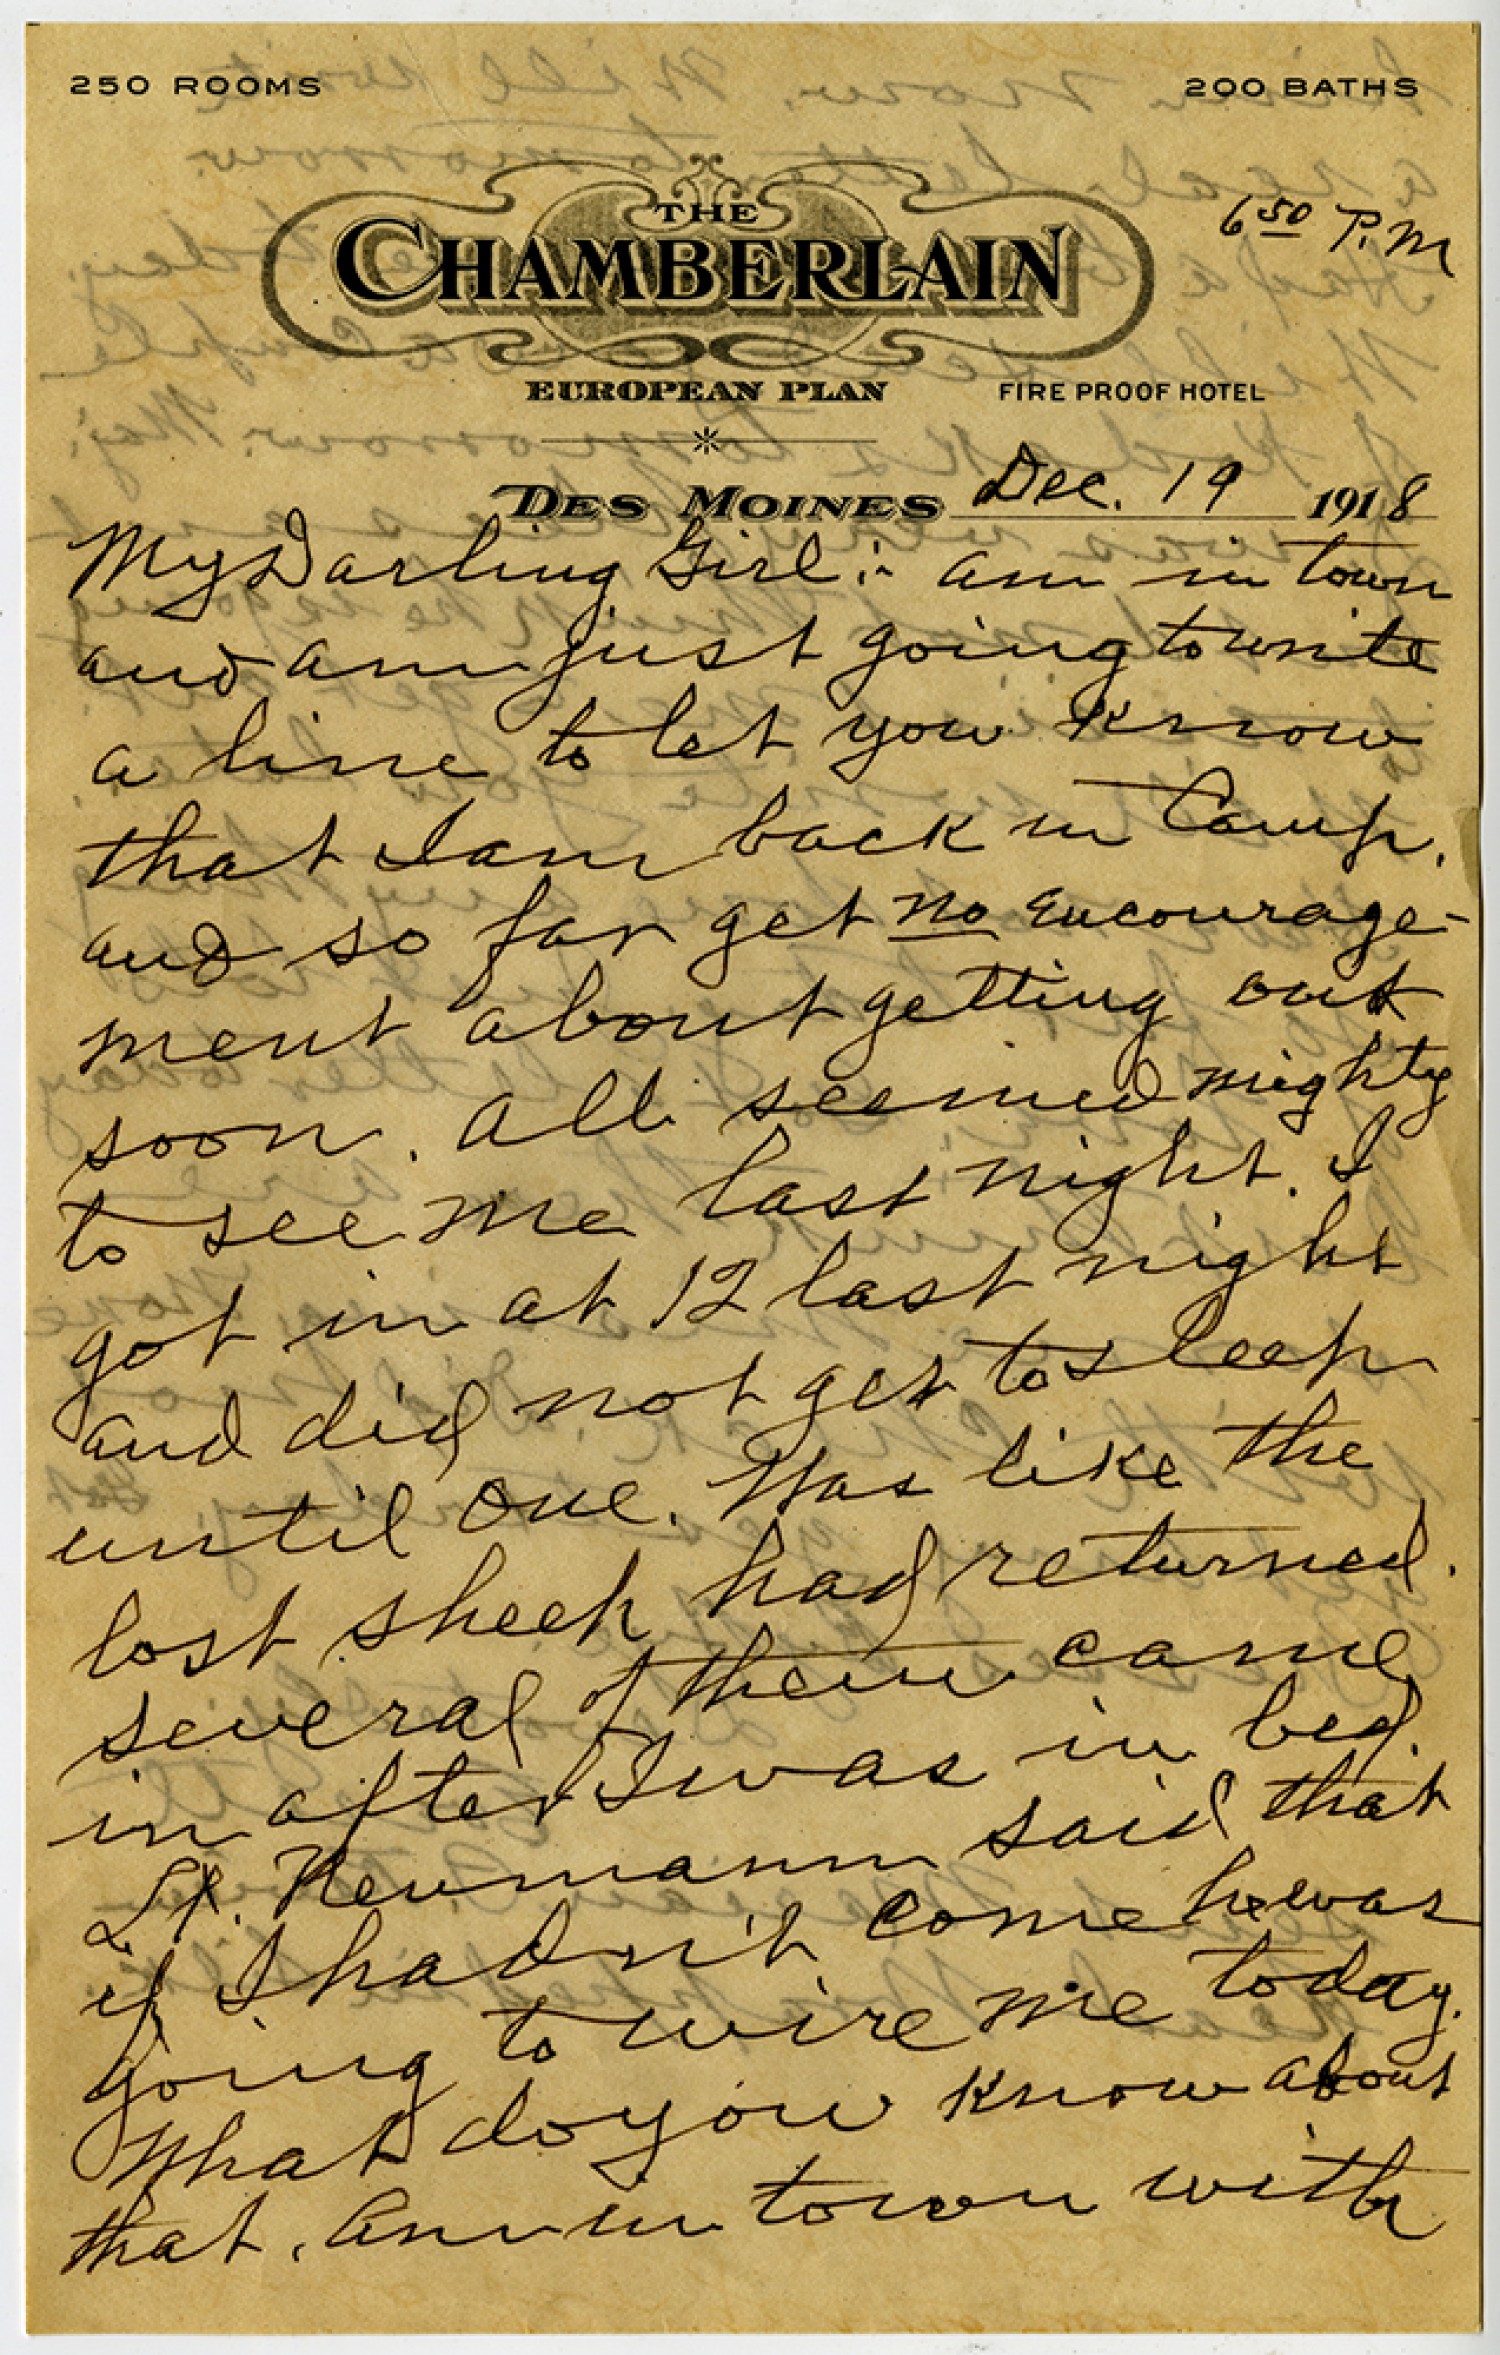 250 ROOMS 200 BATHS
THE
CHAMBERLAIN
6 50 P.M
EUROPEAN PLAN FIRE PROOF HOTEL
DES MOINES Dec. 19 1918
My Darling Girl:- am in town
and am just going to write
a line to let you know
that I am back in Camp.
and so far get no encourage-
ment about getting out
soon. all seemed mighty
to see me last night. I
got in at 12 last night
and did not get to sleep
until one. Was like the
lost sheep had returned.
several of them came
in after I was in bed.
Lt. Newmann said that
if I hadn't come he was
going to wire me today.
What do you know about
that. Am in town with